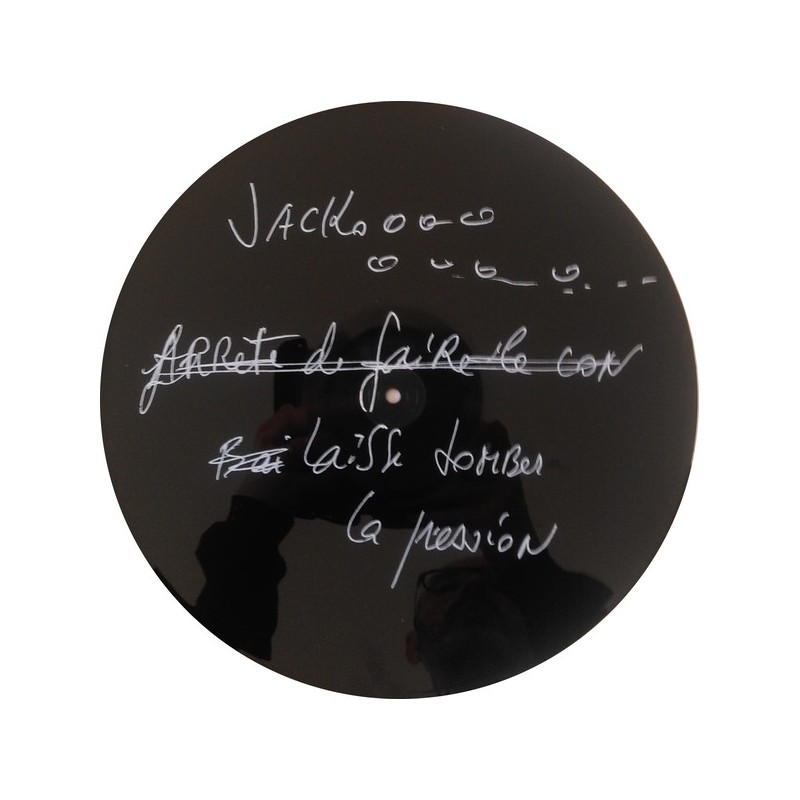 JACK
ARRETE de faire le con
laisse tomber
la pression